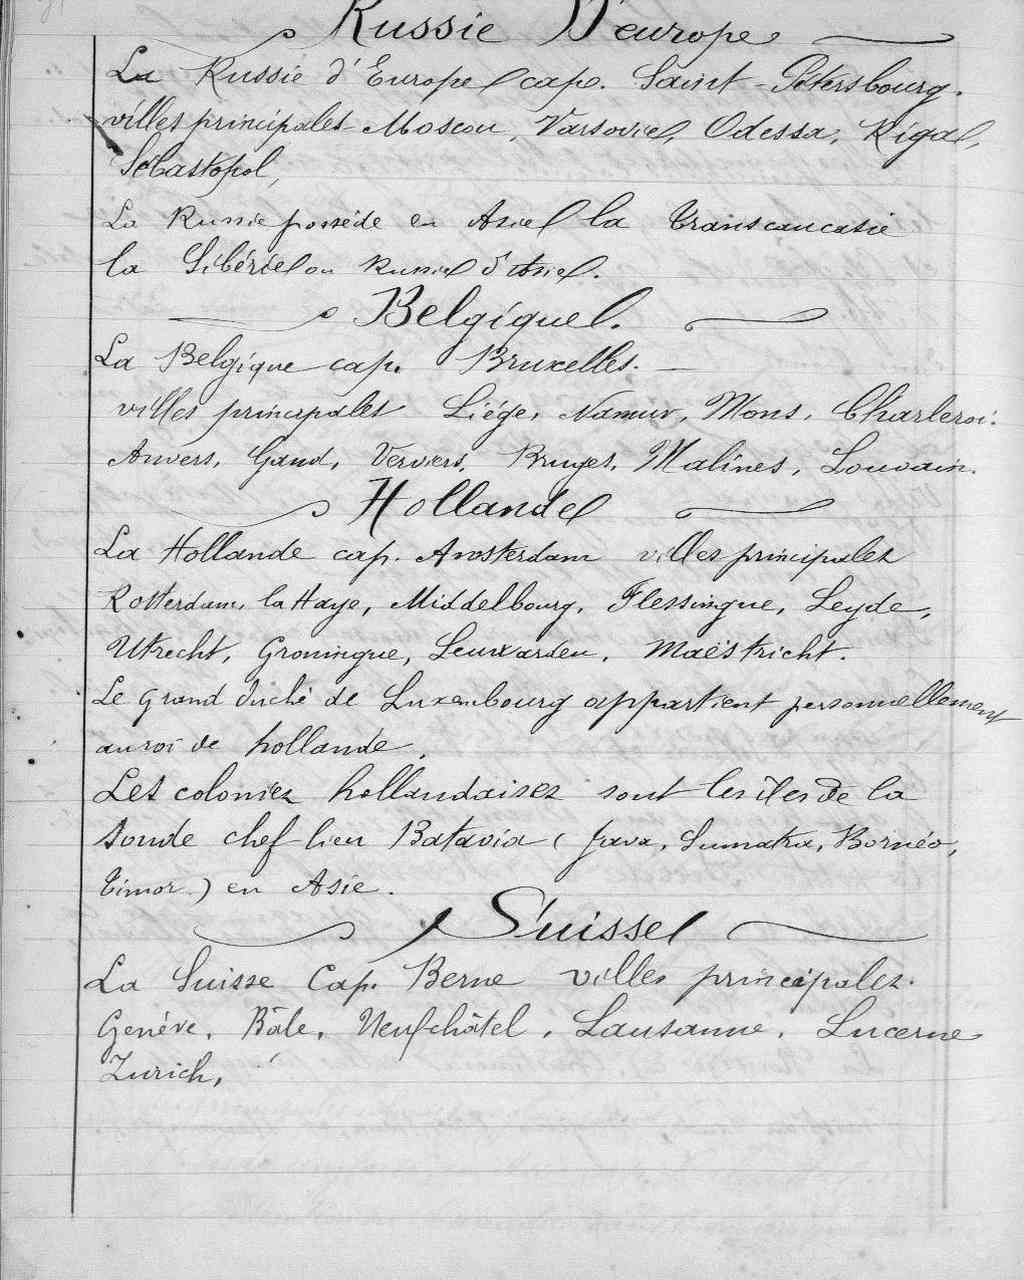 Russie D'europe
La Russie d'Europe cap. Saint-Pétersbourg.
villes principales Moscou, Varsovie, Odessa, Riga,
Sébastopol,
La Russie possède en Asie la Transcaucasie
la Sibérie ou Russie d'Asie.
Belgique.
La Belgique cap. Bruxelles.
villes principales Liége, Namur, Mons, Charleroi.
Anvers, Gand, Verviers, Bruges, Malines, Louvain.
Hollande
La Hollande cap. Amsterdam villes principales
Rotterdam, la Haye, Middelbourg, Flessingue, Leyde,
Utrecht, Groningue, Leuwarden, Maëstricht.
Le Grand duché de Luxembourg appartient personnellement
au roi de hollande.
Les colonies hollandaises sont les îles de la
Sonde chef lieu Batavia (Java, Sumatra, Bornéo,
Timor) en Asie.
Suisse
La Suisse Cap. Berne villes principales.
Genève, Bâle, Neufchâtel, Lausanne, Lucerne
Zurich,